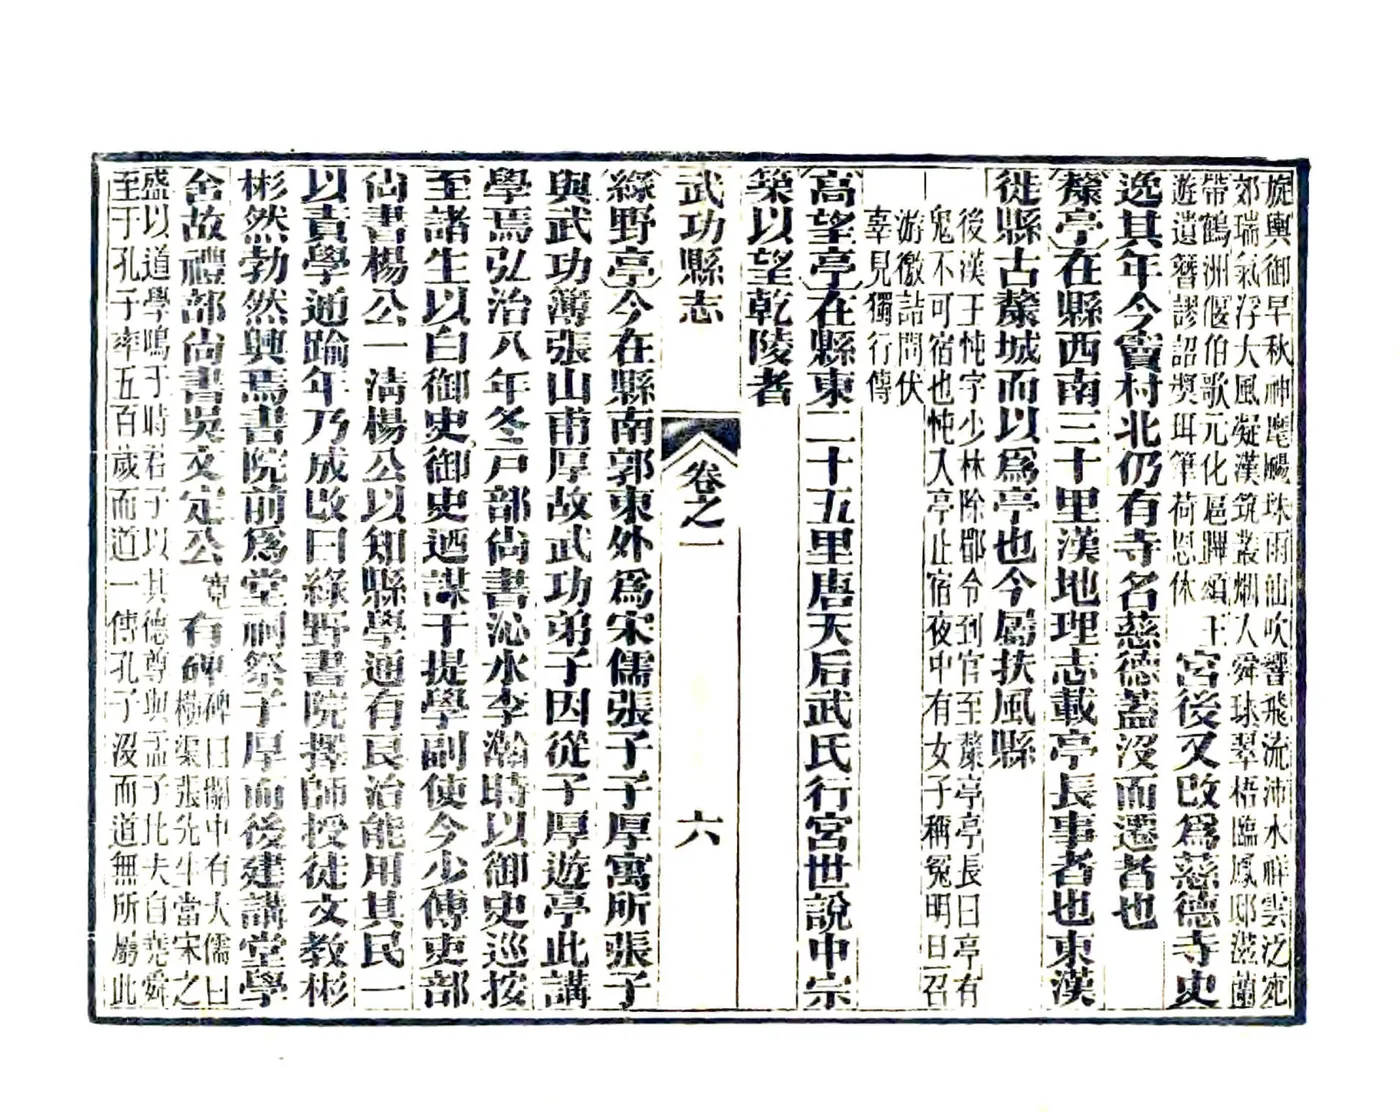 旋輿御早秋神麾颺珠雨仙吹響飛流沛水祥雲泛宛
郊瑞氣浮大風凝漢筑叢烟入舜球翠梧臨鳳邸滋蘭
帶鶴洲偃伯歌元化扈蹕頌王
遊遺簪謬詔奬珥筆荷恩休
宮後又改爲慈德寺史
逸其年今竇村北仍有寺名慈德蓋沒而遷者也
斄亭在縣西南三十里漢地理志載亭長事者也東漢
徙縣古斄城而以爲亭也今屬扶風縣
後漢王忳字少林除郿令到官至斄亭亭長曰亭有
鬼不可宿也忳入亭止宿夜中有女子稱冤明日召
游徼詰問伏
辜見獨行傳
高望亭在縣東二十五里唐天后武氏行宮世說中宗
築以望乾陵者
武功縣志 卷之一 六
綠野亭今在縣南郭東外爲宋儒張子子厚寓所張子
與武功簿張山甫厚故武功弟子因從子厚遊亭此講
學焉弘治八年冬戶部尙書沁水李瀚時以御史巡按
至諸生以白御史御史廼謀于提學副使今少傅吏部
尙書楊公一淸楊公以知縣學通有良治能用其民一
以責學通踰年乃成改曰綠野書院擇師授徒文教彬
彬然勃然興焉書院前爲堂祠祭子厚而後建講堂學
舍故禮部尙書吳文定公寬有碑
碑曰關中有大儒曰
橫渠張先生當宋之
盛以道學鳴于時君子以其德尊與孟子比夫自堯舜
至于孔子率五百歲而道一傳孔子沒而道無所屬此